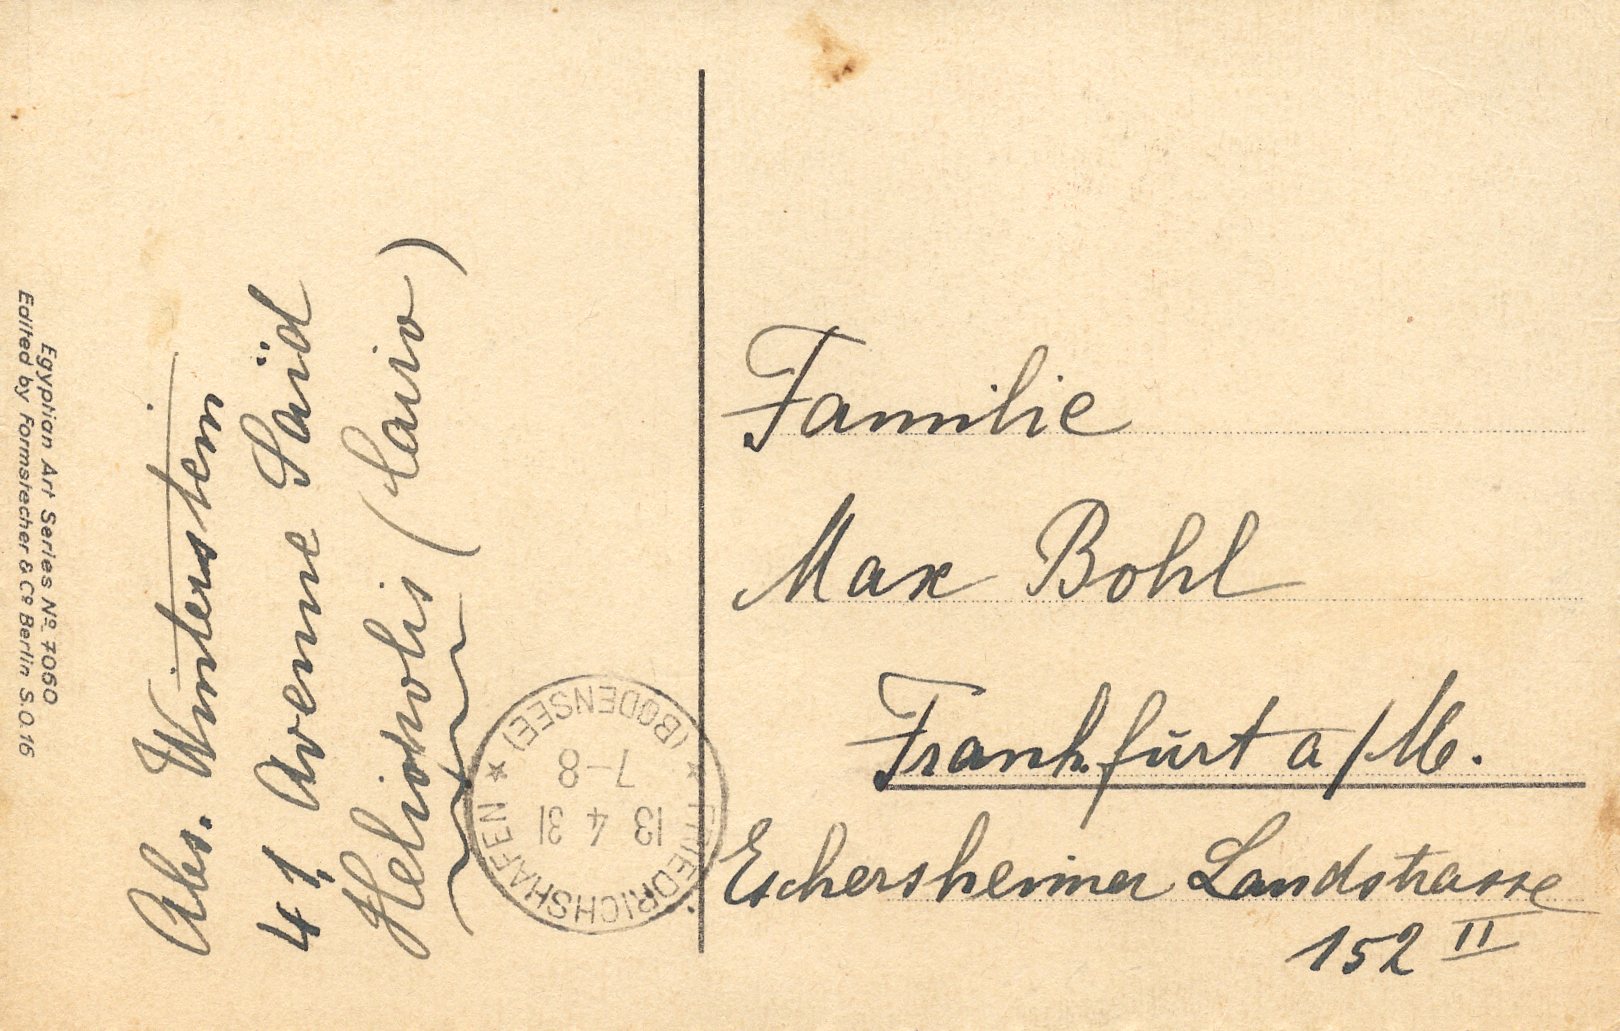 Egyptian Art Series Nº 7060
Edited by Formstecher & Cº Berlin S.O.16
Abs. Winterstein
41, Avenue Saïd
Heliopolis (Cairo)
★ FRIEDRICHSHAFEN ★
(BODENSEE)
13 4 31
7-8
Familie
Max Bohl
Frankfurt a/M.
Eschersheimer Landstrasse
152 II